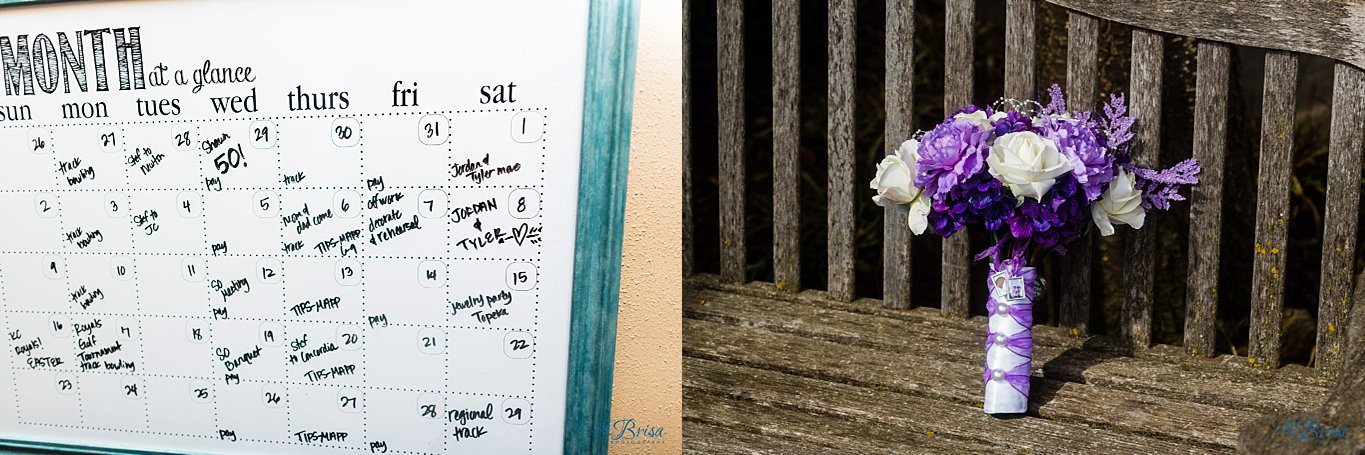 MONTH at a glance
sun mon tues wed thurs fri sat
26 27 28 29 30 31 1
track bowling
Stef to
Shawn
50!
pay
track
pay
Jordan &
Tyler mae
2 3 4 5 6 7 8
track bowling
Stef to
JC
pay
Mom &
dad come
track
TIPS-MAPP
6-9
off work
decorate
& rehearsal
JORDAN
&
TYLER
9 10 11 12 13 14 15
track bowling
SO
Meeting
pay
TIPS-MAPP
pay
jewelry party
Topeka
16 17 18 19 20 21 22
KC
Royals!
EASTER
Royals
Golf
Tournament
track bowling
SO
Banquet
pay
Stef
to Concordia
TIPS-MAPP
23 24 25 26 27 28 29
pay
TIPS-MAPP
pay
regional
track
Brisa
PHOTOGRAPHY